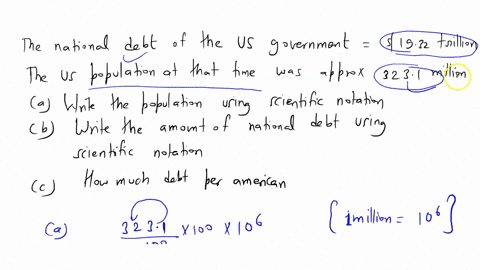 The national debt of the US government = $ 19.32 trillion
The US population at that time was approx 323.1 million
(a) Write the population using scientific notation
(b) Write the amount of national debt using
scientific notation
(c) How much debt per american
(a) 323.1 × 100 × 10⁶ [1 million = 10⁶]
100